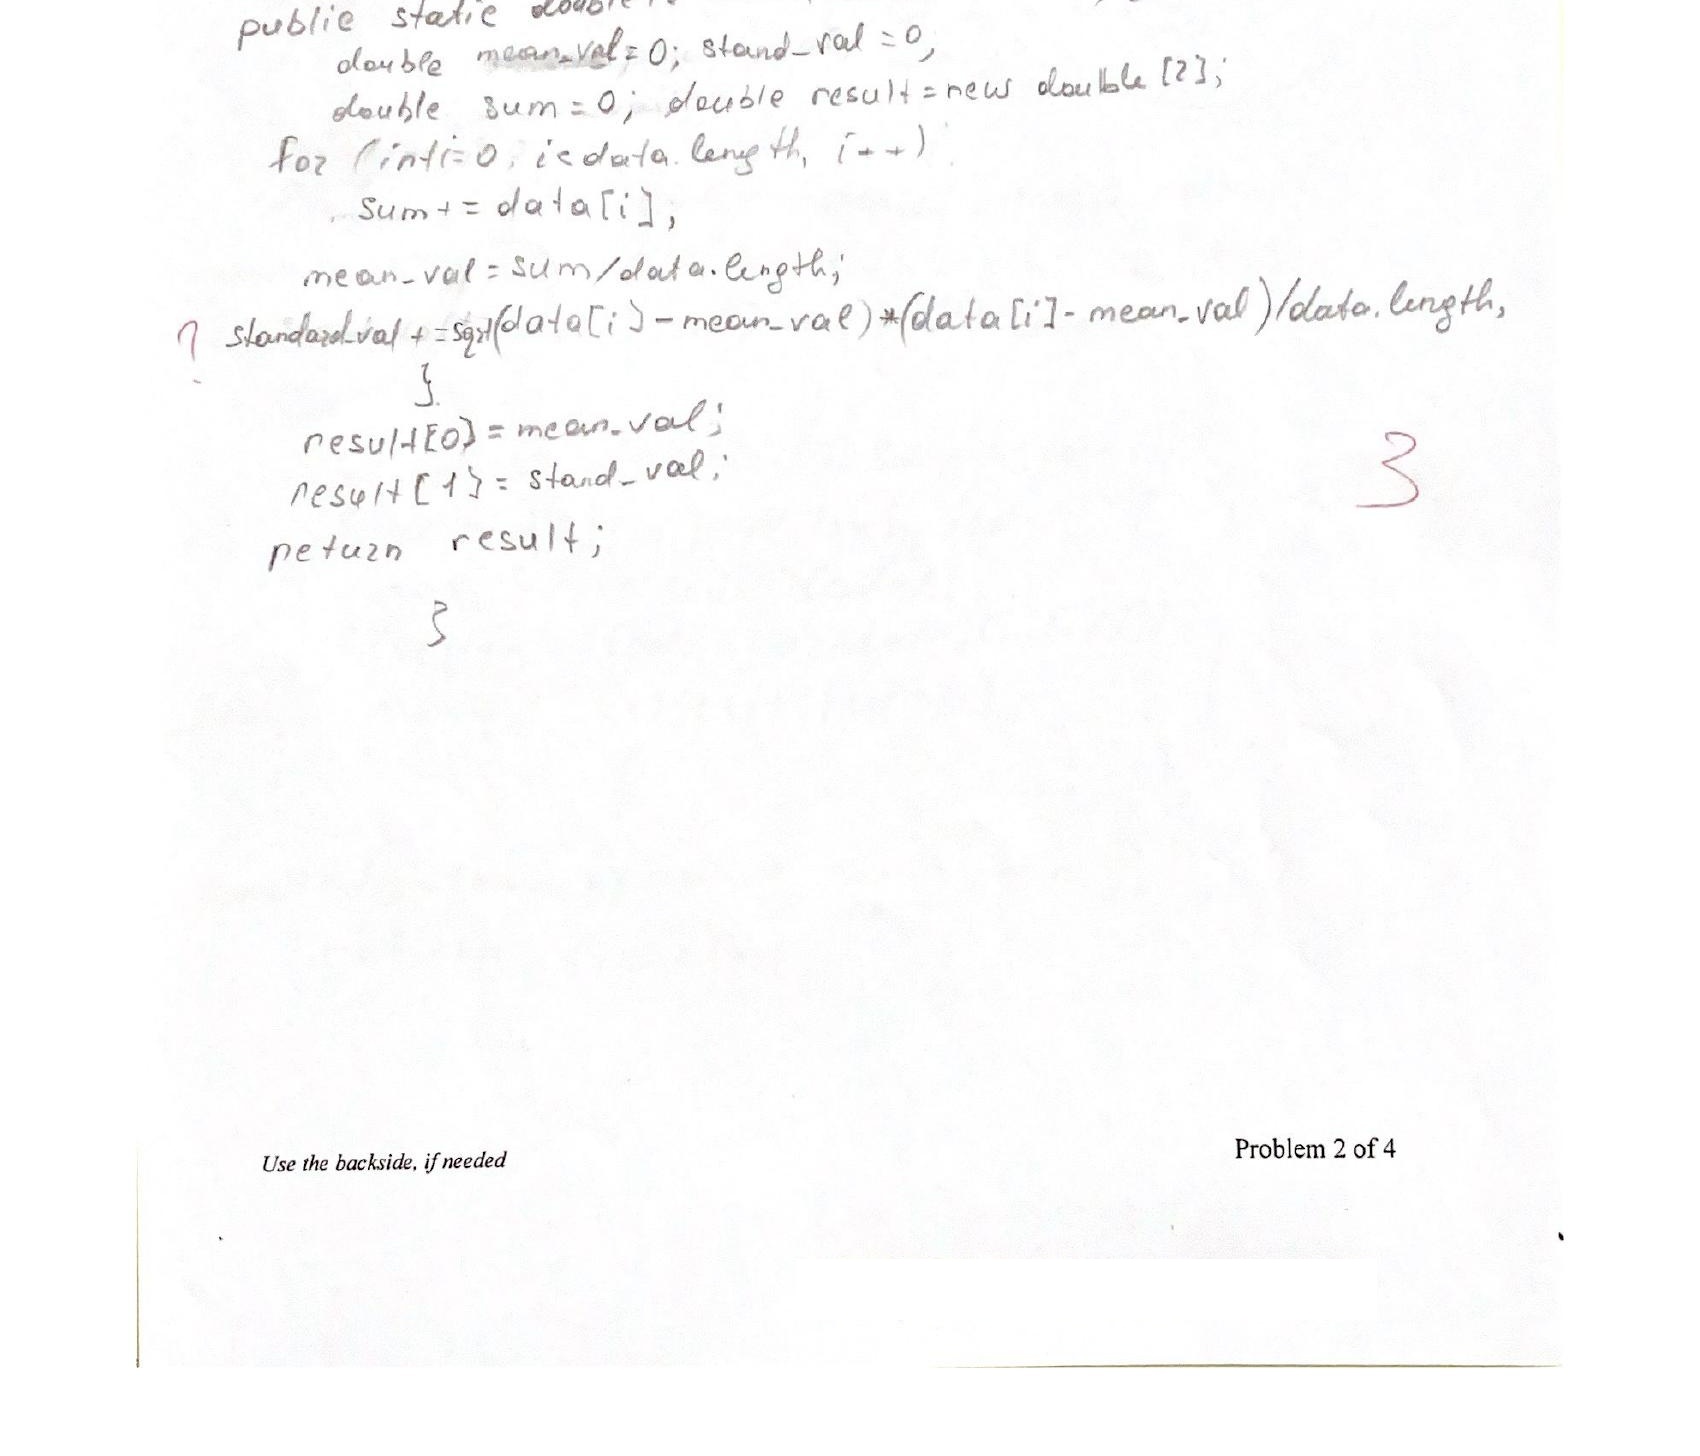 public static double
double mean_val=0; stand_val=0,
double sum=0; double result=new double[2];
for (int i=0, i<data.length, i++)
sum+=data[i],
mean_val=sum/data.length;
? standard_val +=sqrt(data[i]-mean_val)*(data[i]-mean_val)/data.length,
}
result[0]=mean_val;
3
result[1]=stand_val;
return result;
}
Use the backside, if needed
Problem 2 of 4